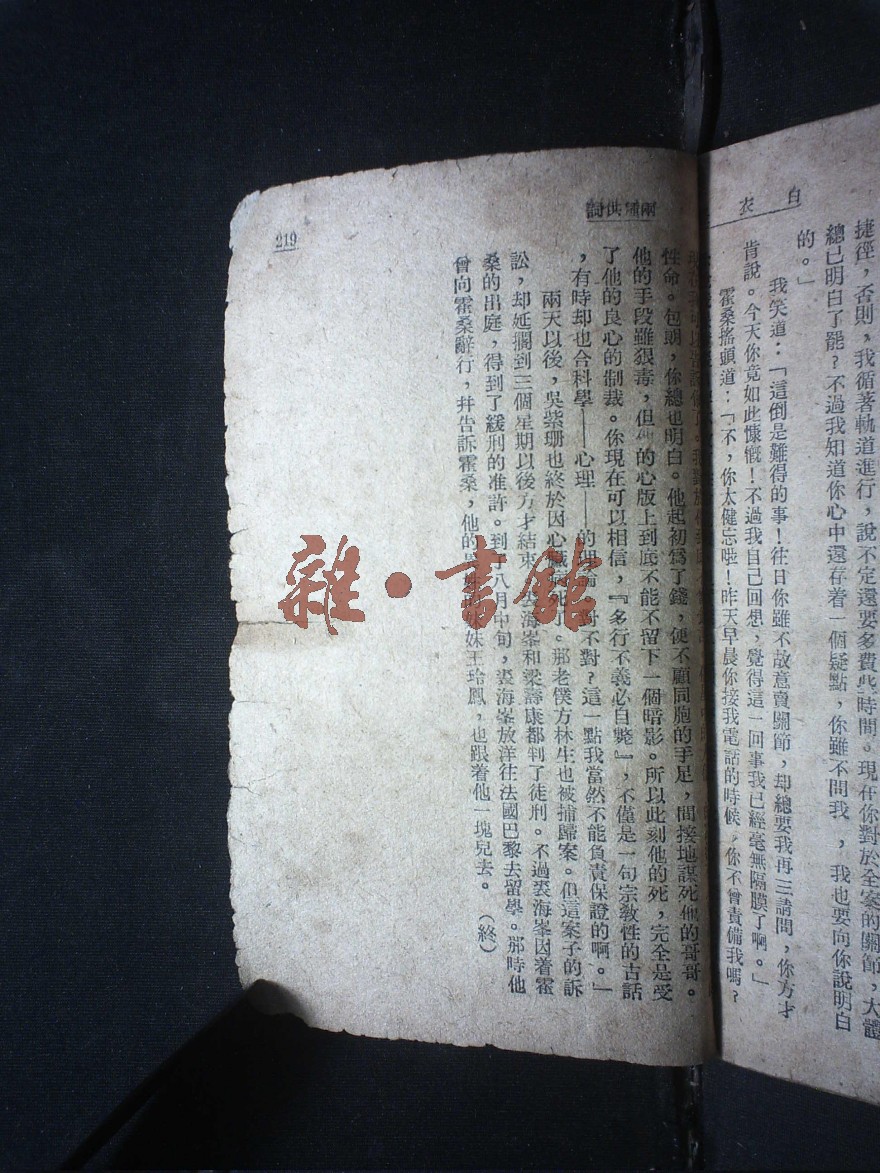 白衣
捷徑,否則,我循著軌道進行,說不定還要多費些時間。現在你對於全案的關節,大體
總已明白了罷?不過我知道你心中還存着一個疑點,你雖不問我,我也要向你說明白
的。」
我笑道:「這倒是難得的事!往日你雖不故意賣關節,却總要我再三請問,你方才
肯說。今天你竟如此慷慨!不過我自己回想,覺得這一回事我已經毫無隔膜了啊。」
霍桑搖頭道:「不,你太健忘啦!昨天早晨你接我電話的時候,你不曾責備我嗎?
兩種供詞
219
性命。包朗,你總也明白。他起初爲了錢,便不顧同胞的手足,間接地謀死他的哥哥。
他的手段雖狠毒,但他的心版上到底不能不留下一個暗影。所以此刻他的死,完全是受
了他的良心的制裁。你現在可以相信,『多行不義必自斃』,不僅是一句宗教性的古話
,有時却也合科學——心理——的理論。對不對?這一點我當然不能負責保證的啊。」
兩天以後,吳紫珊也終於因心臟。那老僕方林生也被捕歸案。但這案子的訴
訟,却延擱到三個星期以後方才結束。裘海峯和梁壽康都判了徒刑。不過裘海峯因着霍
桑的出庭,得到了緩刑的准許。到了八月中旬,裘海峯放洋往法國巴黎去留學。那時他
曾向霍桑辭行,幷告訴霍桑,他的妹王玲鳳,也跟着他一塊兒去。(終)
雜·書館